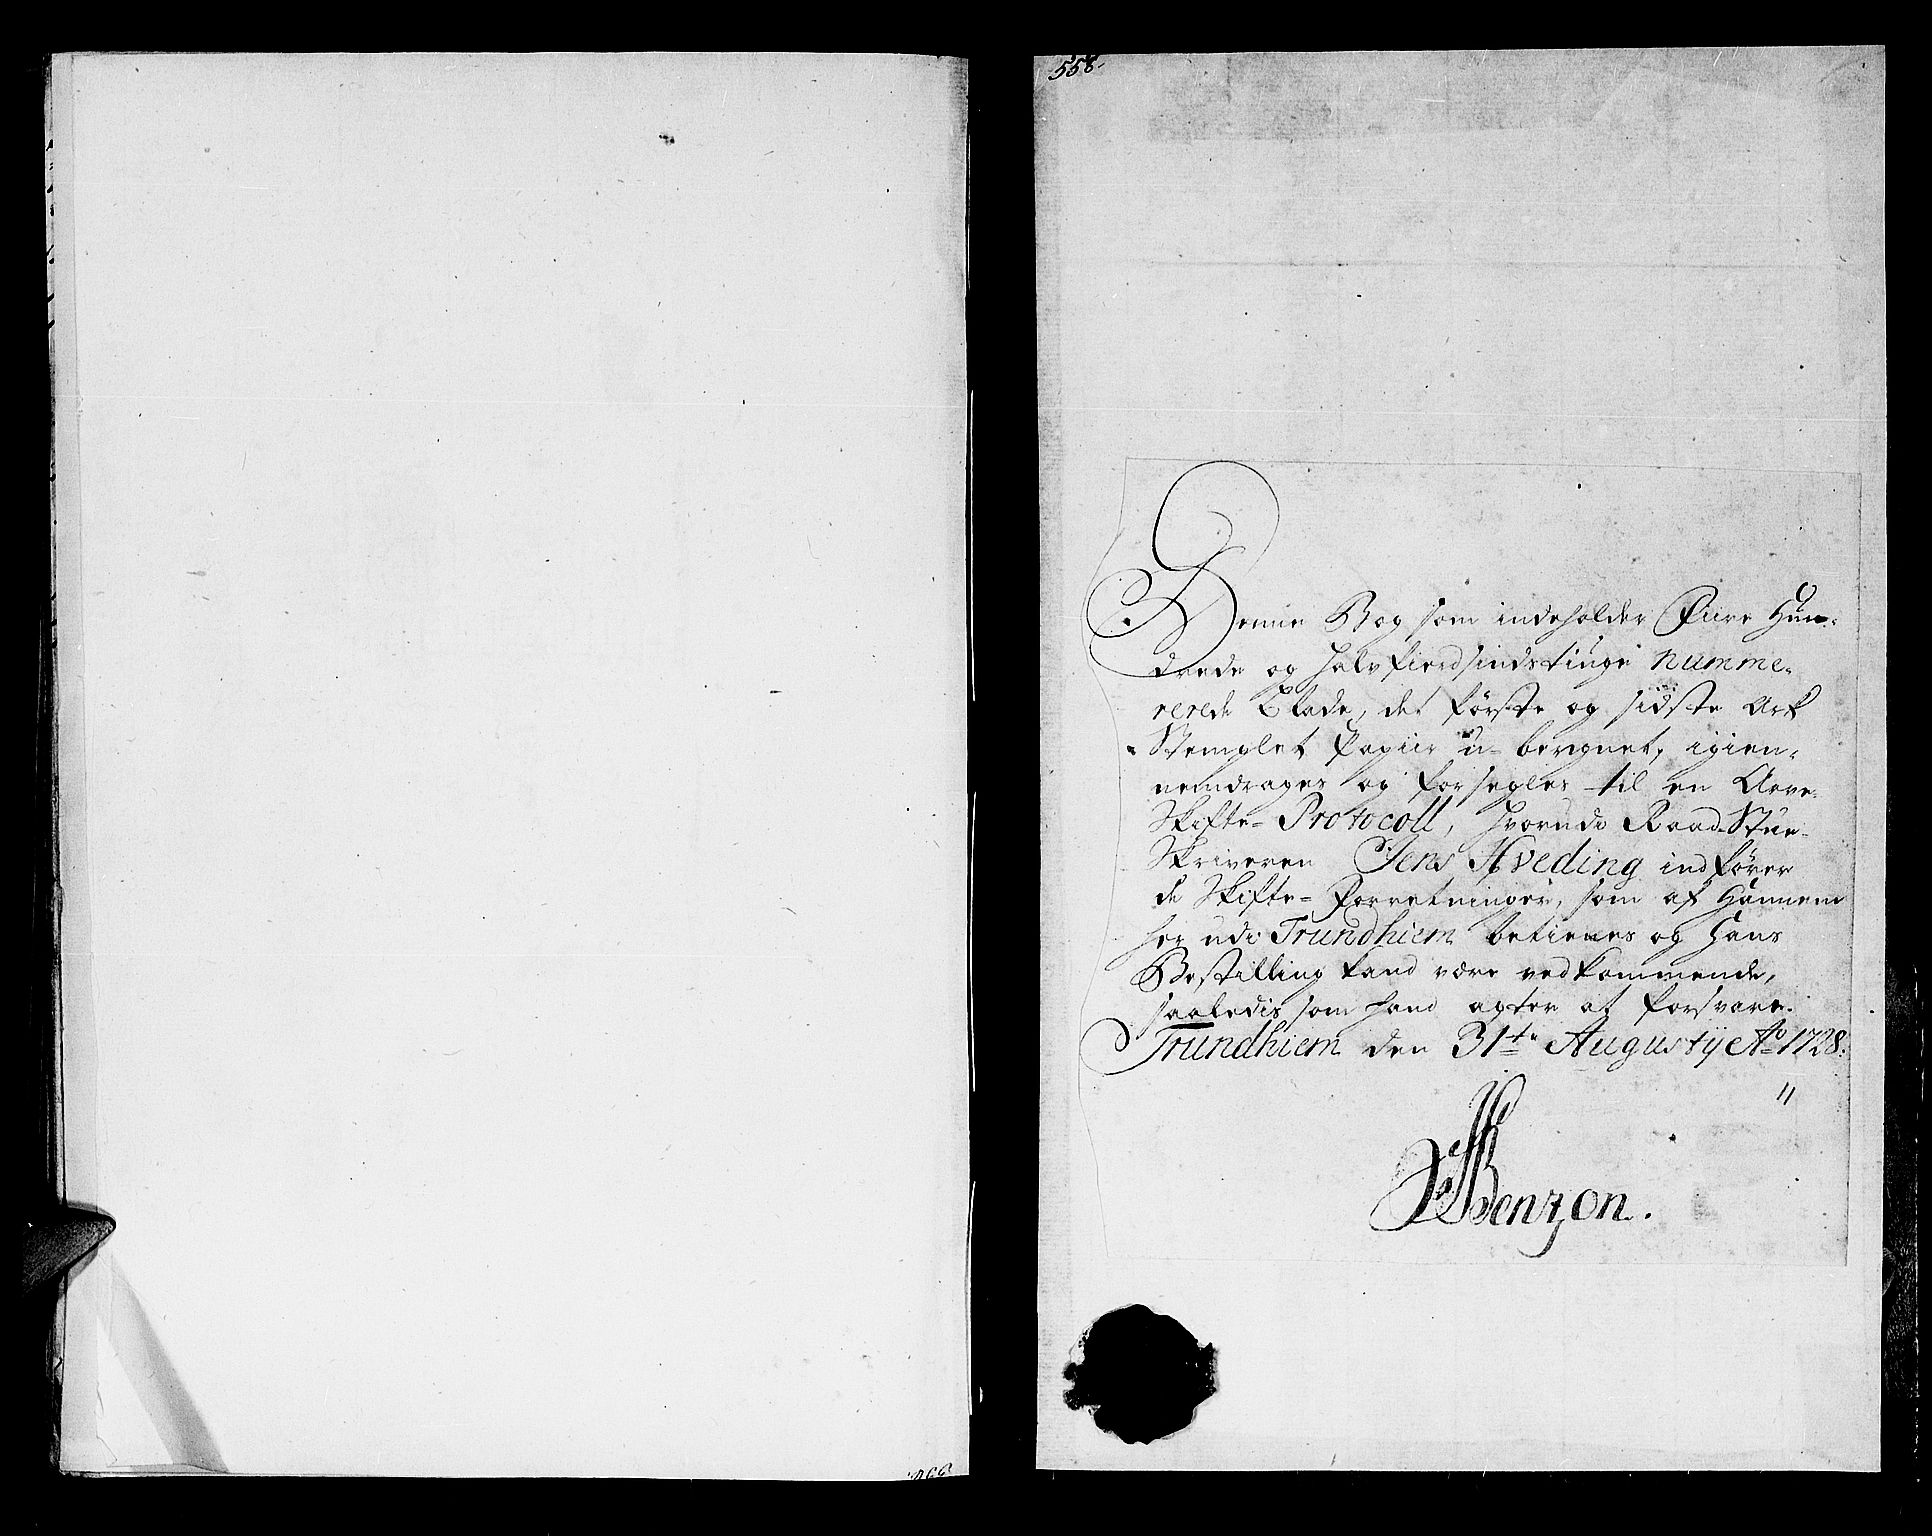 558.
Denne Bog som indeholder Fiire Hun-
drede og halvfierdsindstiuge Numme-
rerede Blade, det første og sidste Ark
Stemplet Papiir u-beregnet, igien-
nemdrages og forsegles til en Arve-
Skifte-Protocoll, hvorudi Raad-Stue-
Skriveren Jens Hveding indfører
de Skifte-Forretninger, som af Hannem
her udi Trundhiem betienes og Hans
Bestilling kand være vedkommende,
saaledis som hand agter at forsvare.
Trundhiem den 31te Augustij Ao 1728.
Benzon.